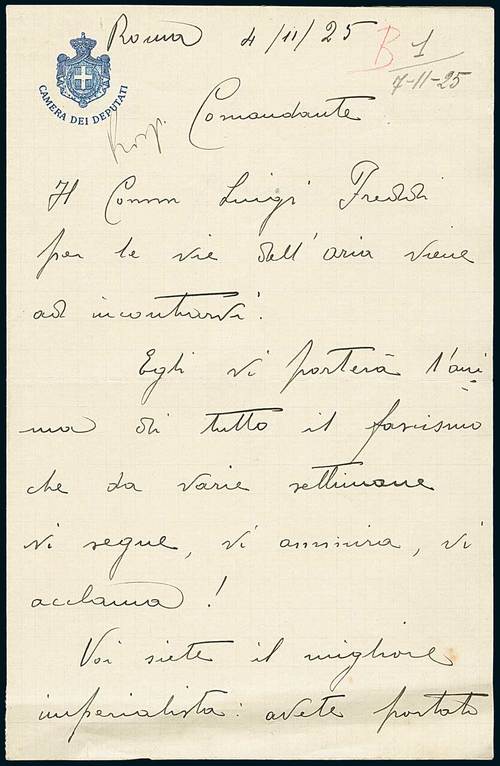 Roma 4/11/25
B 1
7-11-25
CAMERA DEI DEPUTATI
Comandante
Il Comm Luigi Freddi
per le vie dell'aria viene
ad incontrarvi.
Egli vi porterà l'ani
ma di tutto il fascismo
che da varie settimane
vi segue, vi ammira, vi
acclama!
Voi siete il migliore
imperialista: avete portato